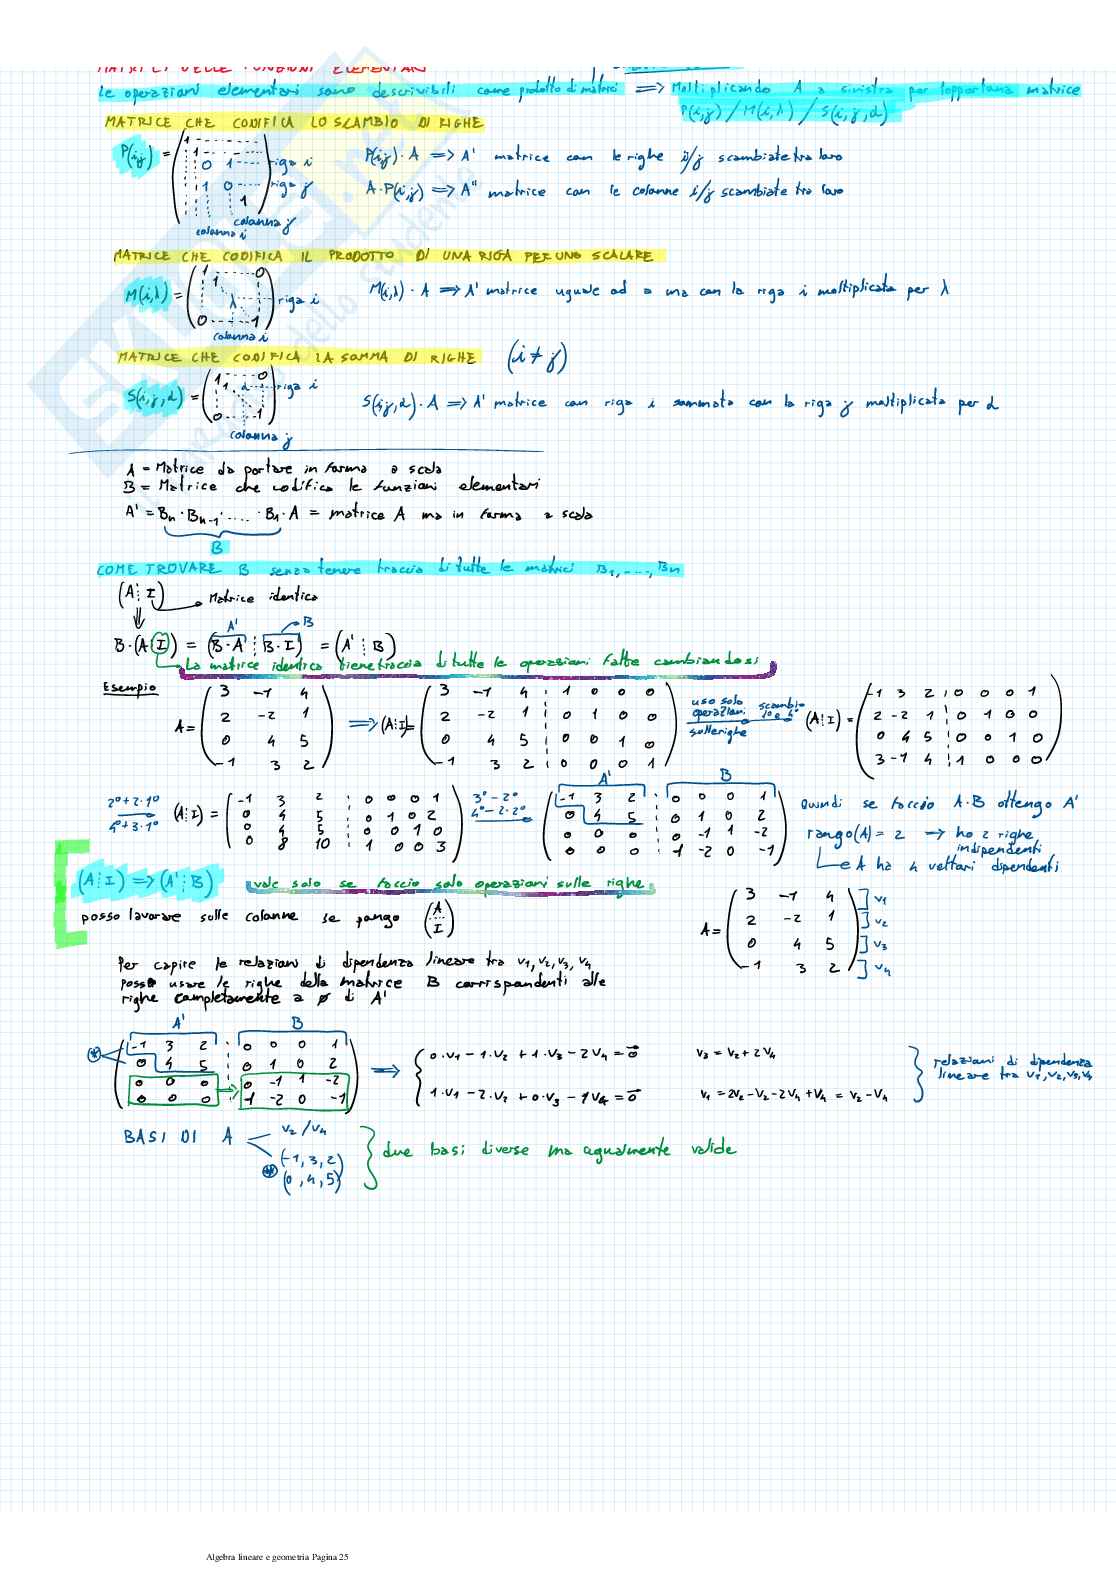 MATRICI DELLE FUNZIONI ELEMENTARI
Le operazioni elementari sono descrivibili come prodotto di matrici ⟹ Moltiplicando A a sinistra per l'opportuna matrice
P(i,j) / M(i,λ) / S(i,j,α)
MATRICE CHE CODIFICA LO SCAMBIO DI RIGHE
P(i,j) = riga i riga j colonna j colonna i
P(i,j) · A ⟹ A' matrice con le righe i/j scambiate tra loro
A · P(i,j) ⟹ A'' matrice con le colonne i/j scambiate tra loro
MATRICE CHE CODIFICA IL PRODOTTO DI UNA RIGA PER UNO SCALARE
M(i,λ) = 1 0 1 λ 0 1 riga i colonna i
M(i,λ) · A ⟹ A' matrice uguale ad a ma con la riga i moltiplicata per λ
MATRICE CHE CODIFICA LA SOMMA DI RIGHE (i ≠ j)
S(i,j,α) = 1 0 1 α 0 1 riga i colonna j
S(i,j,α) · A ⟹ A' matrice con riga i sommata con la riga j moltiplicata per α
A = Matrice da portare in forma a scala
B = Matrice che codifica le funzioni elementari
A' = Bn · Bn-1 · .... · B1 · A = matrice A ma in forma a scala
B
COME TROVARE B senza tenere traccia di tutte le matrici B1, ..., Bn
(A ⋮ I) Matrice identica
A' B
B · (A I) = (B · A' ⋮ B · I') = (A' ⋮ B)
La matrice identica tiene traccia di tutte le operazioni fatte cambiandosi
Esempio
A = ( 3 -1 4
2 -2 1
0 4 5
-1 3 2 )
⟹ (A⋮I) = ( 3 -1 4 1 0 0 0
2 -2 1 0 1 0 0
0 4 5 0 0 1 0
-1 3 2 0 0 0 1 )
uso solo operazioni sulle righe
scambio
(A⋮I) = ( -1 3 2 0 0 0 1
2 -2 1 0 1 0 0
0 4 5 0 0 1 0
3 -1 4 1 0 0 0 )
2°+2·1°
4°+3·1°
(A⋮I) = ( -1 3 2 0 0 0 1
0 4 5 0 1 0 2
0 4 5 0 0 1 0
0 8 10 1 0 0 3 )
3°-2°
4°-2·2°
A' B
( -1 3 2 0 0 0 1
0 4 5 0 1 0 2
0 0 0 0 -1 1 -2
0 0 0 1 -2 0 -1 )
Quindi se faccio A·B ottengo A'
rango(A) = 2 → ho 2 righe indipendenti
e A ha 4 vettori dipendenti
(A⋮I) ⟹ (A'⋮B) vale solo se faccio solo operazioni sulle righe
posso lavorare sulle colonne se pongo (A
I)
A = ( 3 -1 4 ] v1
2 -2 1 ] v2
0 4 5 ] v3
-1 3 2 ) ] v4
Per capire le relazioni di dipendenza lineare tra v1, v2, v3, v4
posso usare le righe della matrice B corrispondenti alle
righe completamente a 0 di A'
A' B
( -1 3 2 0 0 0 1
0 4 5 0 1 0 2
0 0 0 0 -1 1 -2
0 0 0 1 -2 0 -1 )
⟹ { 0·v1 - 1·v2 + 1·v3 - 2v4 = 0 v3 = v2 + 2v4
1·v1 - 2·v2 + 0·v3 - 1v4 = 0 v1 = 2v2 - v2 - 2v4 + v4 = v2 - v4
relazioni di dipendenza
lineare tra v1, v2, v3, v4
BASI DI A v2 / v4
(-1, 3, 2)
(0, 4, 5)
due basi diverse ma ugualmente valide
Algebra lineare e geometria Pagina 25